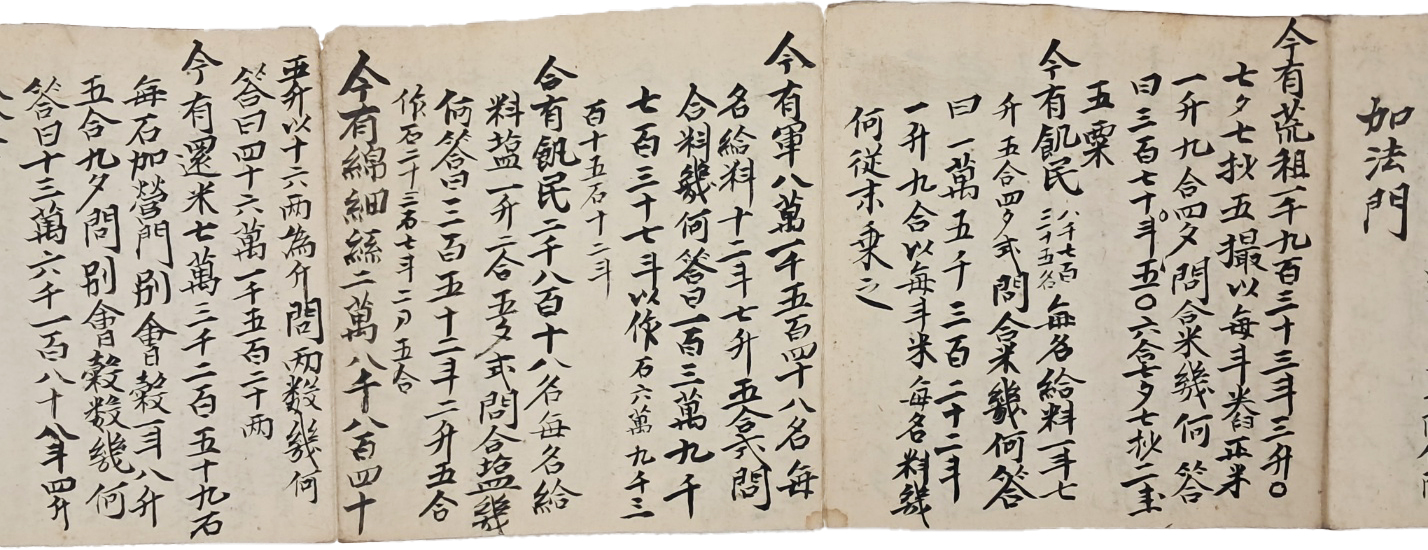 加法門
今有荒租一千九百三十三斗三升〇
七夕七抄五撮以每斗米舂正米
一升九合四夕問合米幾何答
曰三百七十斗五〇六合七夕七抄二圭
五粟
今有飢民八千七百三十五名每名給料一斗七
升五合四夕式問合米幾何答
曰一萬五千三百二十二斗
一升九合以每斗米每名料幾
何從末乗之
今有軍八萬一千五百四十八名每
名給料十二斗七升五合式問
合料幾何答曰一百三萬九千
七百三十七斗以作石六萬九千三
百十五石十二斗
合有飢民二千八百十八名每名給
料塩一升二合五夕式問合塩幾
何答曰三百五十二斗二升五合
作石二十三石七斗二刀五合
今有綿細絲二萬八千八百四十
五斤以十六兩為斤問兩数幾何
答曰四十六萬一千五百二十兩
今有還米七萬三千二百五十九石
每石加營門別會穀一斗八升
五合九夕問別會穀数幾何
答曰十三萬六千一百八十八斗四升